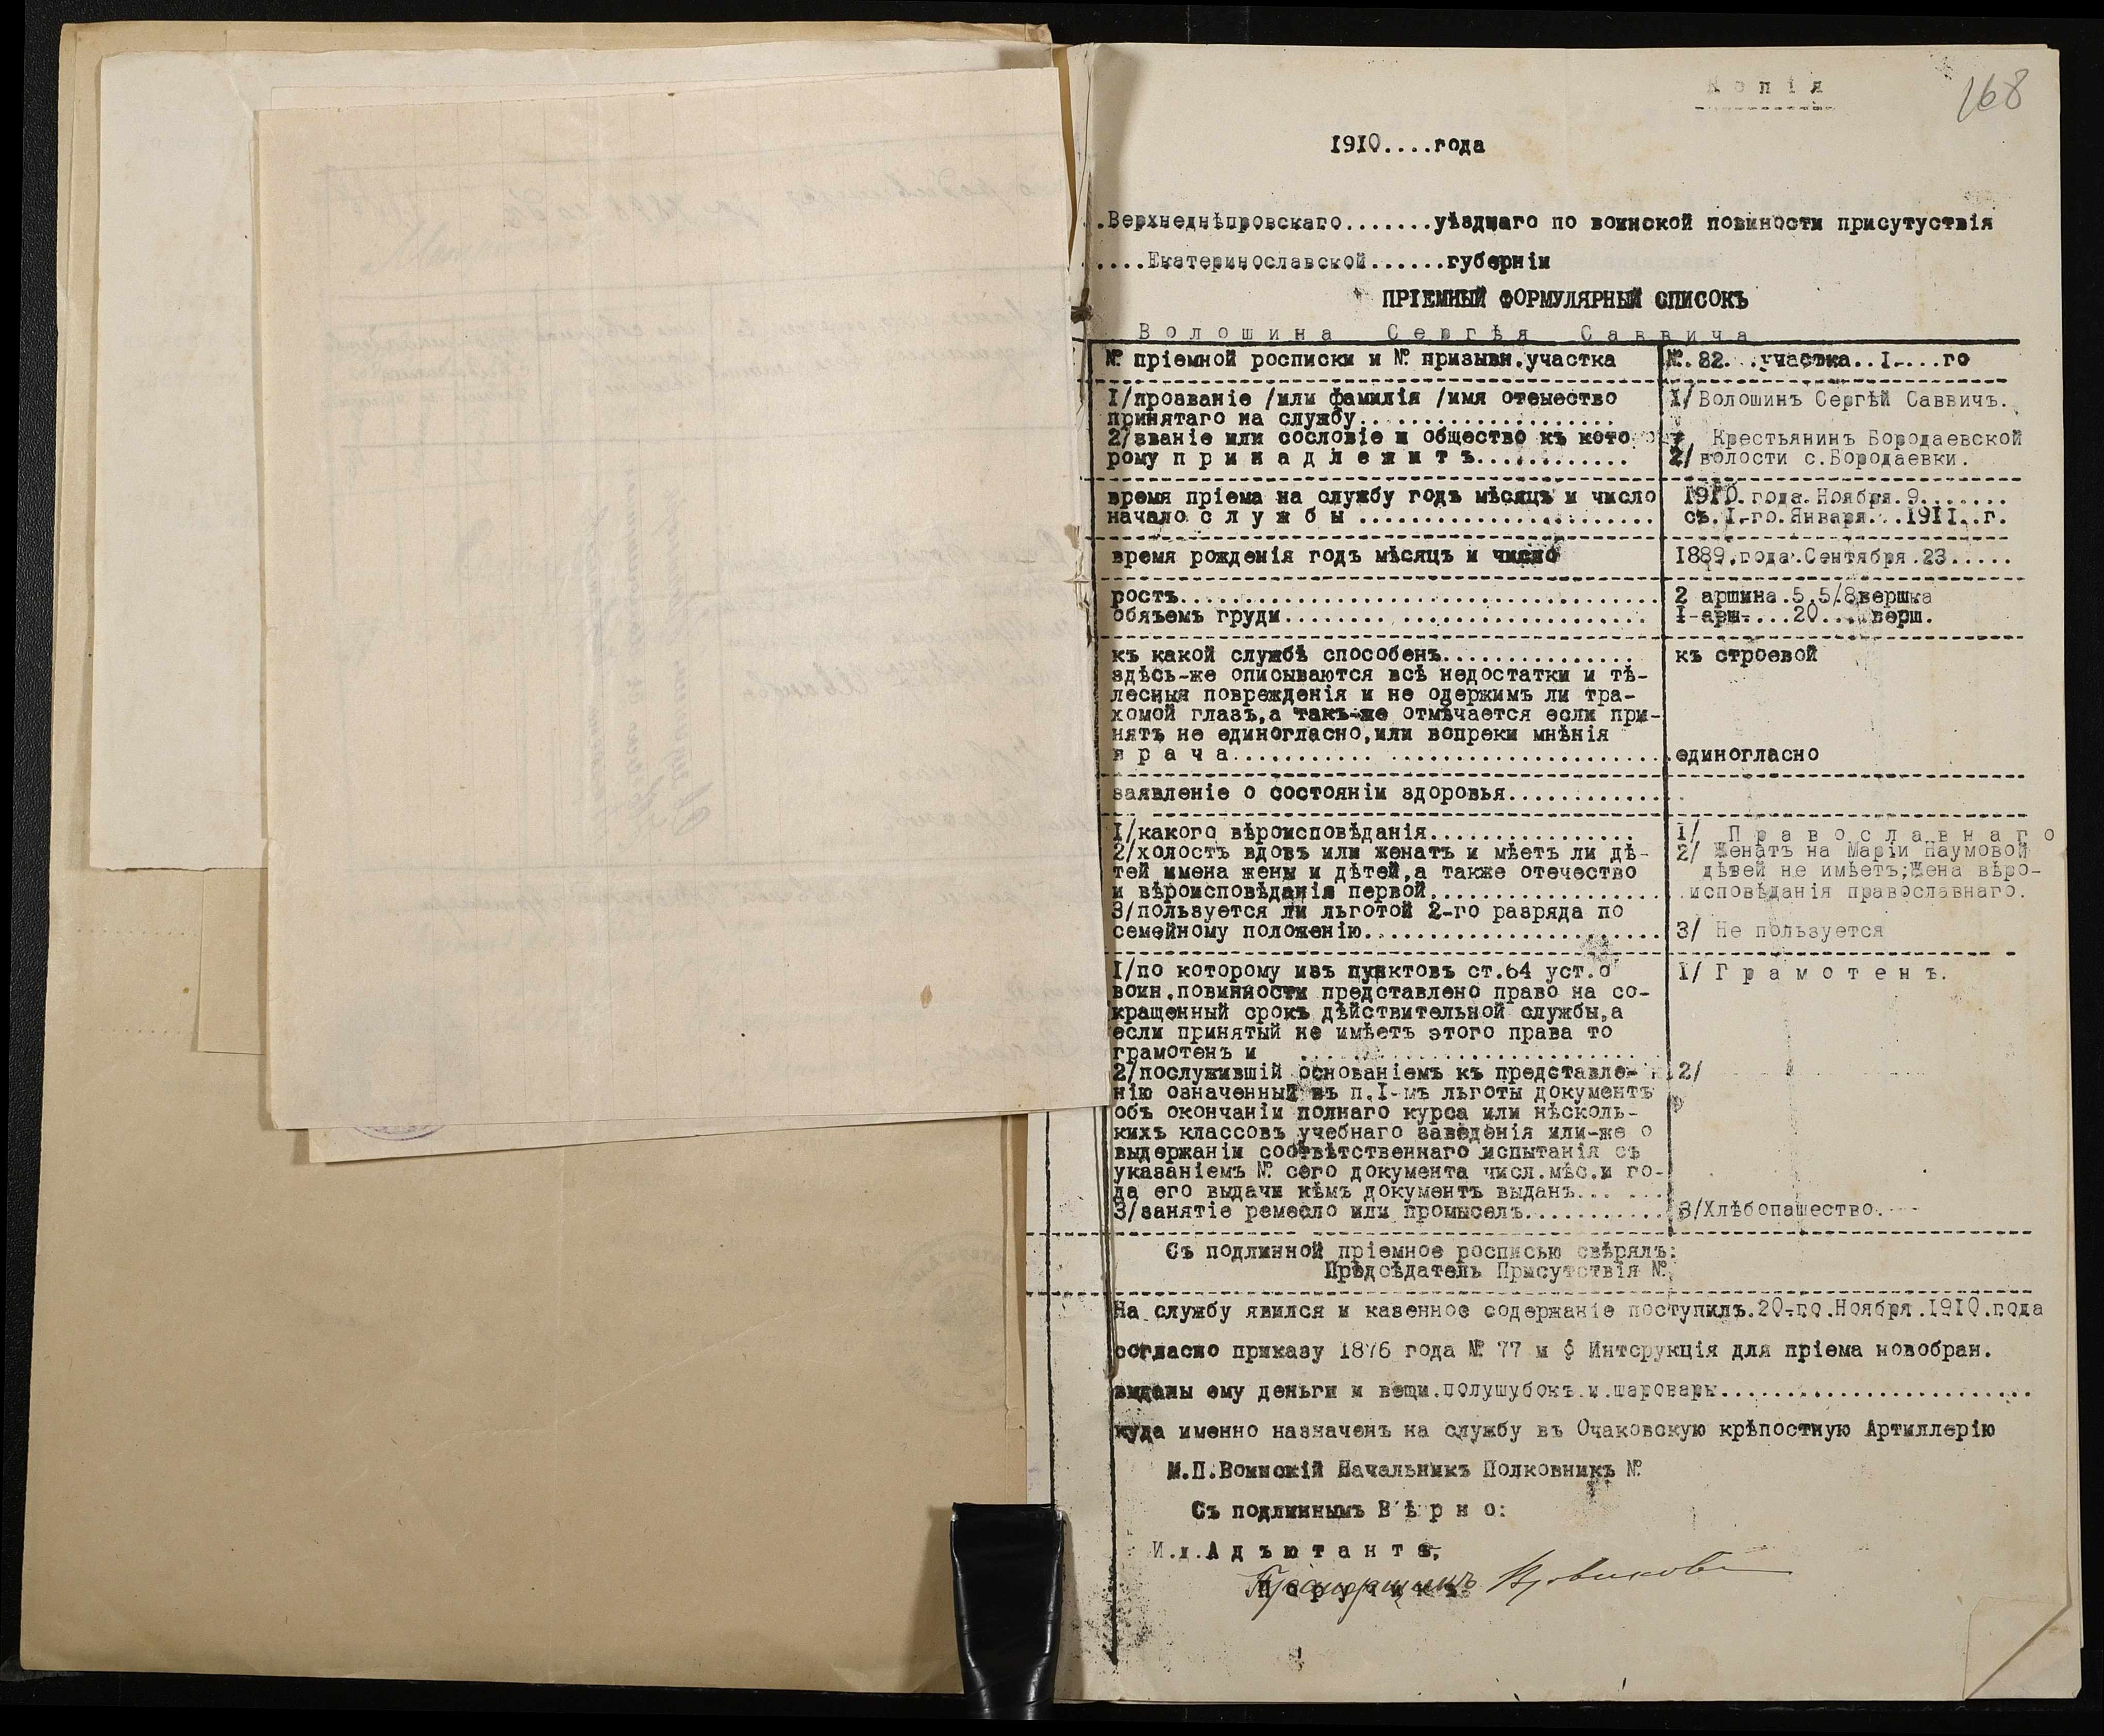 Копія
168
1910....года
.Верхнеднѣпровскаго.......уѣзднаго по воинской повиности присутуствія
....Екатеринославской......губерніи
ПРІЕМНЫЙ ФОРМУЛЯРНЫЙ СПИСОКЪ
Волошина Сергѣя Саввича
№ пріемной росписки и № призывн.участка
№.82...участка..I-....го
I/прозваніе /или фамилія /имя отечество
принятаго на службу.....................
I/Волошинъ Сергѣй Саввичъ.
2/званіе или сословіе и общество къ кото
рому п р и н а д л е ж и т ъ............
Крестьянинъ Бородаевской
2/волости с.Бородаевки.
время пріема на службу годъ мѣсяцъ и число
начало с л у ж б ы .......................
1910.года.Ноября.9.......
съ.I-го.Января...1911..г.
время рожденія годъ мѣсяцъ и число
1889.года.Сентября.23.....
ростъ.....................................
обяъемъ груди............................
2 аршина.5.5/8вершка
I-арш-....20....верш.
къ какой службѣ способенъ...............
къ строевой
здѣсь-же описываются всѣ недостатки и тѣ-
лесныя поврежденія и не одержимъ ли тра-
хомой глазъ,а такъ-же отмѣчается если при-
нятъ не единогласно,или вопреки мнѣнія
в р а ч а................................
единогласно
заявленіе о состояніи здоровья..............
I/какого вѣроисповѣданія................
2/холостъ вдовъ или женатъ и мѣетъ ли дѣ-
тей имена жены и дѣтей,а также отечество
и вѣроисповѣданія первой.................
3/пользуется ли льготой 2-го разряда по
семейному положенію.......................
I/ П р а в о с л а в н а г о
2/ Женатъ на Маріи Наумовой
дѣтей не имѣетъ;Жена вѣро-
исповѣданія православнаго.
3/ Не пользуется
I/по которому изъ пунктовъ ст.64 уст.о
воин.повинности представлено право на со-
кращенный срокъ дѣйствительной службы,а
если принятый не имѣетъ этого права то
грамотенъ и ..........................
I/ Г р а м о т е н ъ.
2/послужившій основаніемъ къ представле-
нію означенный въ п.I-мъ льготы документъ
объ окончаніи полнаго курса или нѣсколь-
кихъ классовъ учебнаго заведенія или-же о
выдержаніи соотвѣтственнаго испытанія съ
указаніемъ № сего документа числ.мѣс.и го-
да его выдачи кѣмъ документъ выданъ... ...
2/
3/занятіе ремесло или промыселъ...........
3/Хлѣбопашество.
Съ подлинной пріемное росписью свѣрялъ:
Предсѣдатель Присутствія №
На службу явился и казенное содержаніе поступилъ.20-го.Ноября.1910.года
согласно приказу 1876 года № 77 и § Интсрукція для пріема новобран.
выданы ему деньги и вещи.полушубокъ.и.шаровары........................
куда именно назначенъ на службу въ Очаковскую крѣпостную Артиллерію
М.П.Воинскій Начальникъ Полковникъ №
Съ подлиннымъ В ѣ р н о:
И.д.А д ъ ю т а н т а,
П о р у ч и к ъ
Прапорщикъ